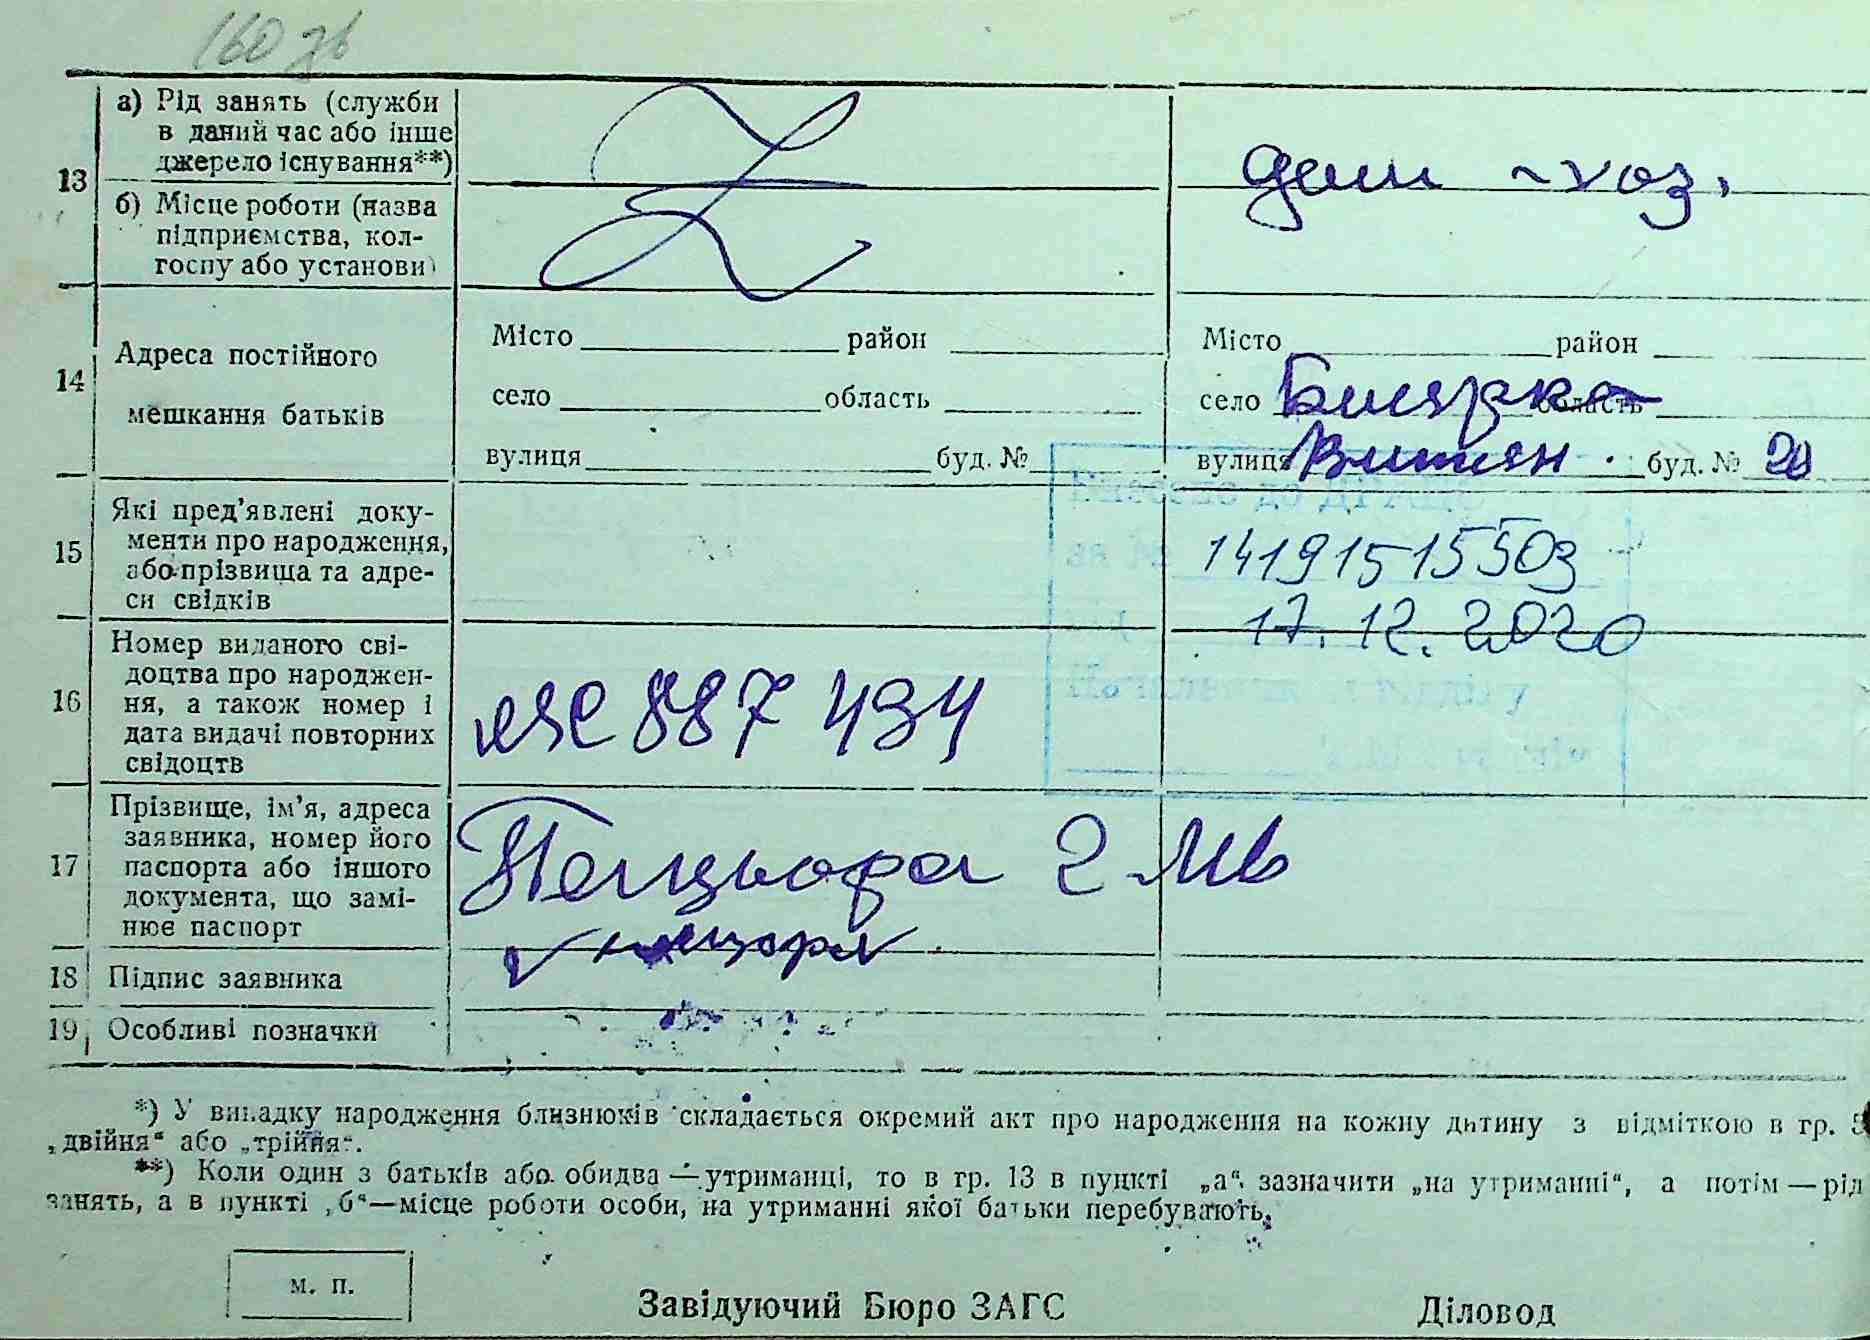 160 зв
13
а) Рід занять (служби
в даний час або інше
джерело існування**)
дом - хоз.
б) Місце роботи (назва
підприємства, кол-
госпу або установи)
14
Адреса постійного
мешкання батьків
Місто район
село область
вулиця буд. №
Місто район
село область
вулиця буд. № 20
15
Які пред'явлені доку-
менти про народження,
або прізвища та адре-
си свідків
14191515503
17.12.2020
16
Номер виданого сві-
доцтва про народжен-
ня, а також номер і
дата видачі повторних
свідоцтв
887 434
17
Прізвище, ім'я, адреса
заявника, номер його
паспорта або іншого
документа, що замі-
нює паспорт
18 Підпис заявника
19 Особливі позначки
*) У випадку народження близнюків складається окремий акт про народження на кожну дитину з відміткою в гр. 5
„двійня“ або „трійня“.
**) Коли один з батьків або обидва — утриманці, то в гр. 13 в пункті „а“ зазначити „на утриманні“, а потім — рід
занять, а в пункті „б“—місце роботи особи, на утриманні якої батьки перебувають.
м. п.
Завідуючий Бюро ЗАГС
Діловод